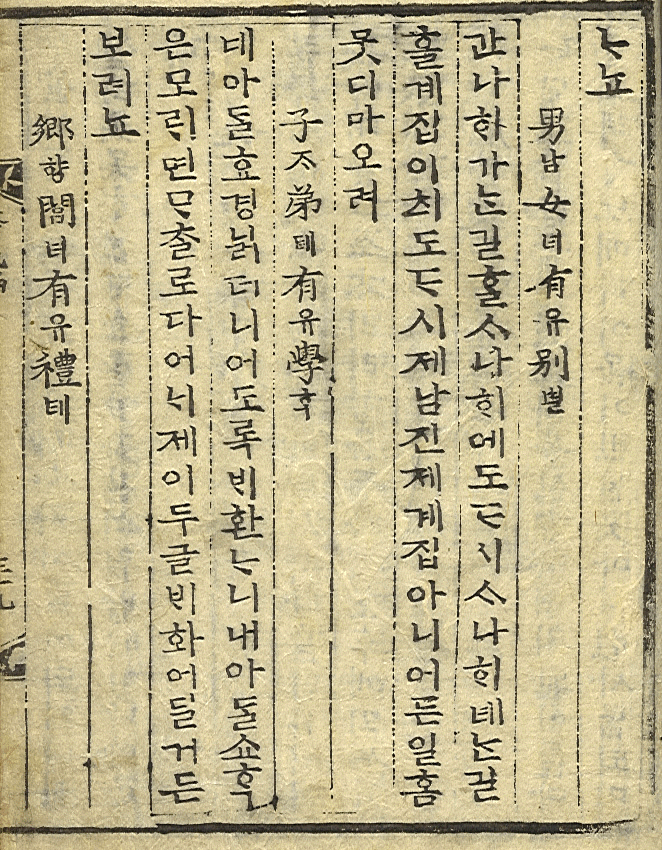 ᄂᆞ뇨
男남女녀有유別별
간나ᄒᆡ가ᄂᆞᆫ길흘ᄉᆞ나ᄒᆡ에도ᄃᆞ시ᄉᆞ나ᄒᆡ녜ᄂᆞᆫ길
흘계집이츼도ᄃᆞ시제남진제계집아니어든일홈
뭇디마오려
子ᄌᆞ弟뎨有유學ᄒᆞᆨ
네아ᄃᆞᆯ효경닑더니어도록ᄇᆡ환ᄂᆞ니내아ᄃᆞᆯ쇼ᄒᆞᆨ
은모ᄅᆡ면ᄆᆞᄎᆞᆯ로다어ᄂᆡ제이두글ᄇᆡ화어딜거든
보려뇨
鄕향閭녀有유禮례